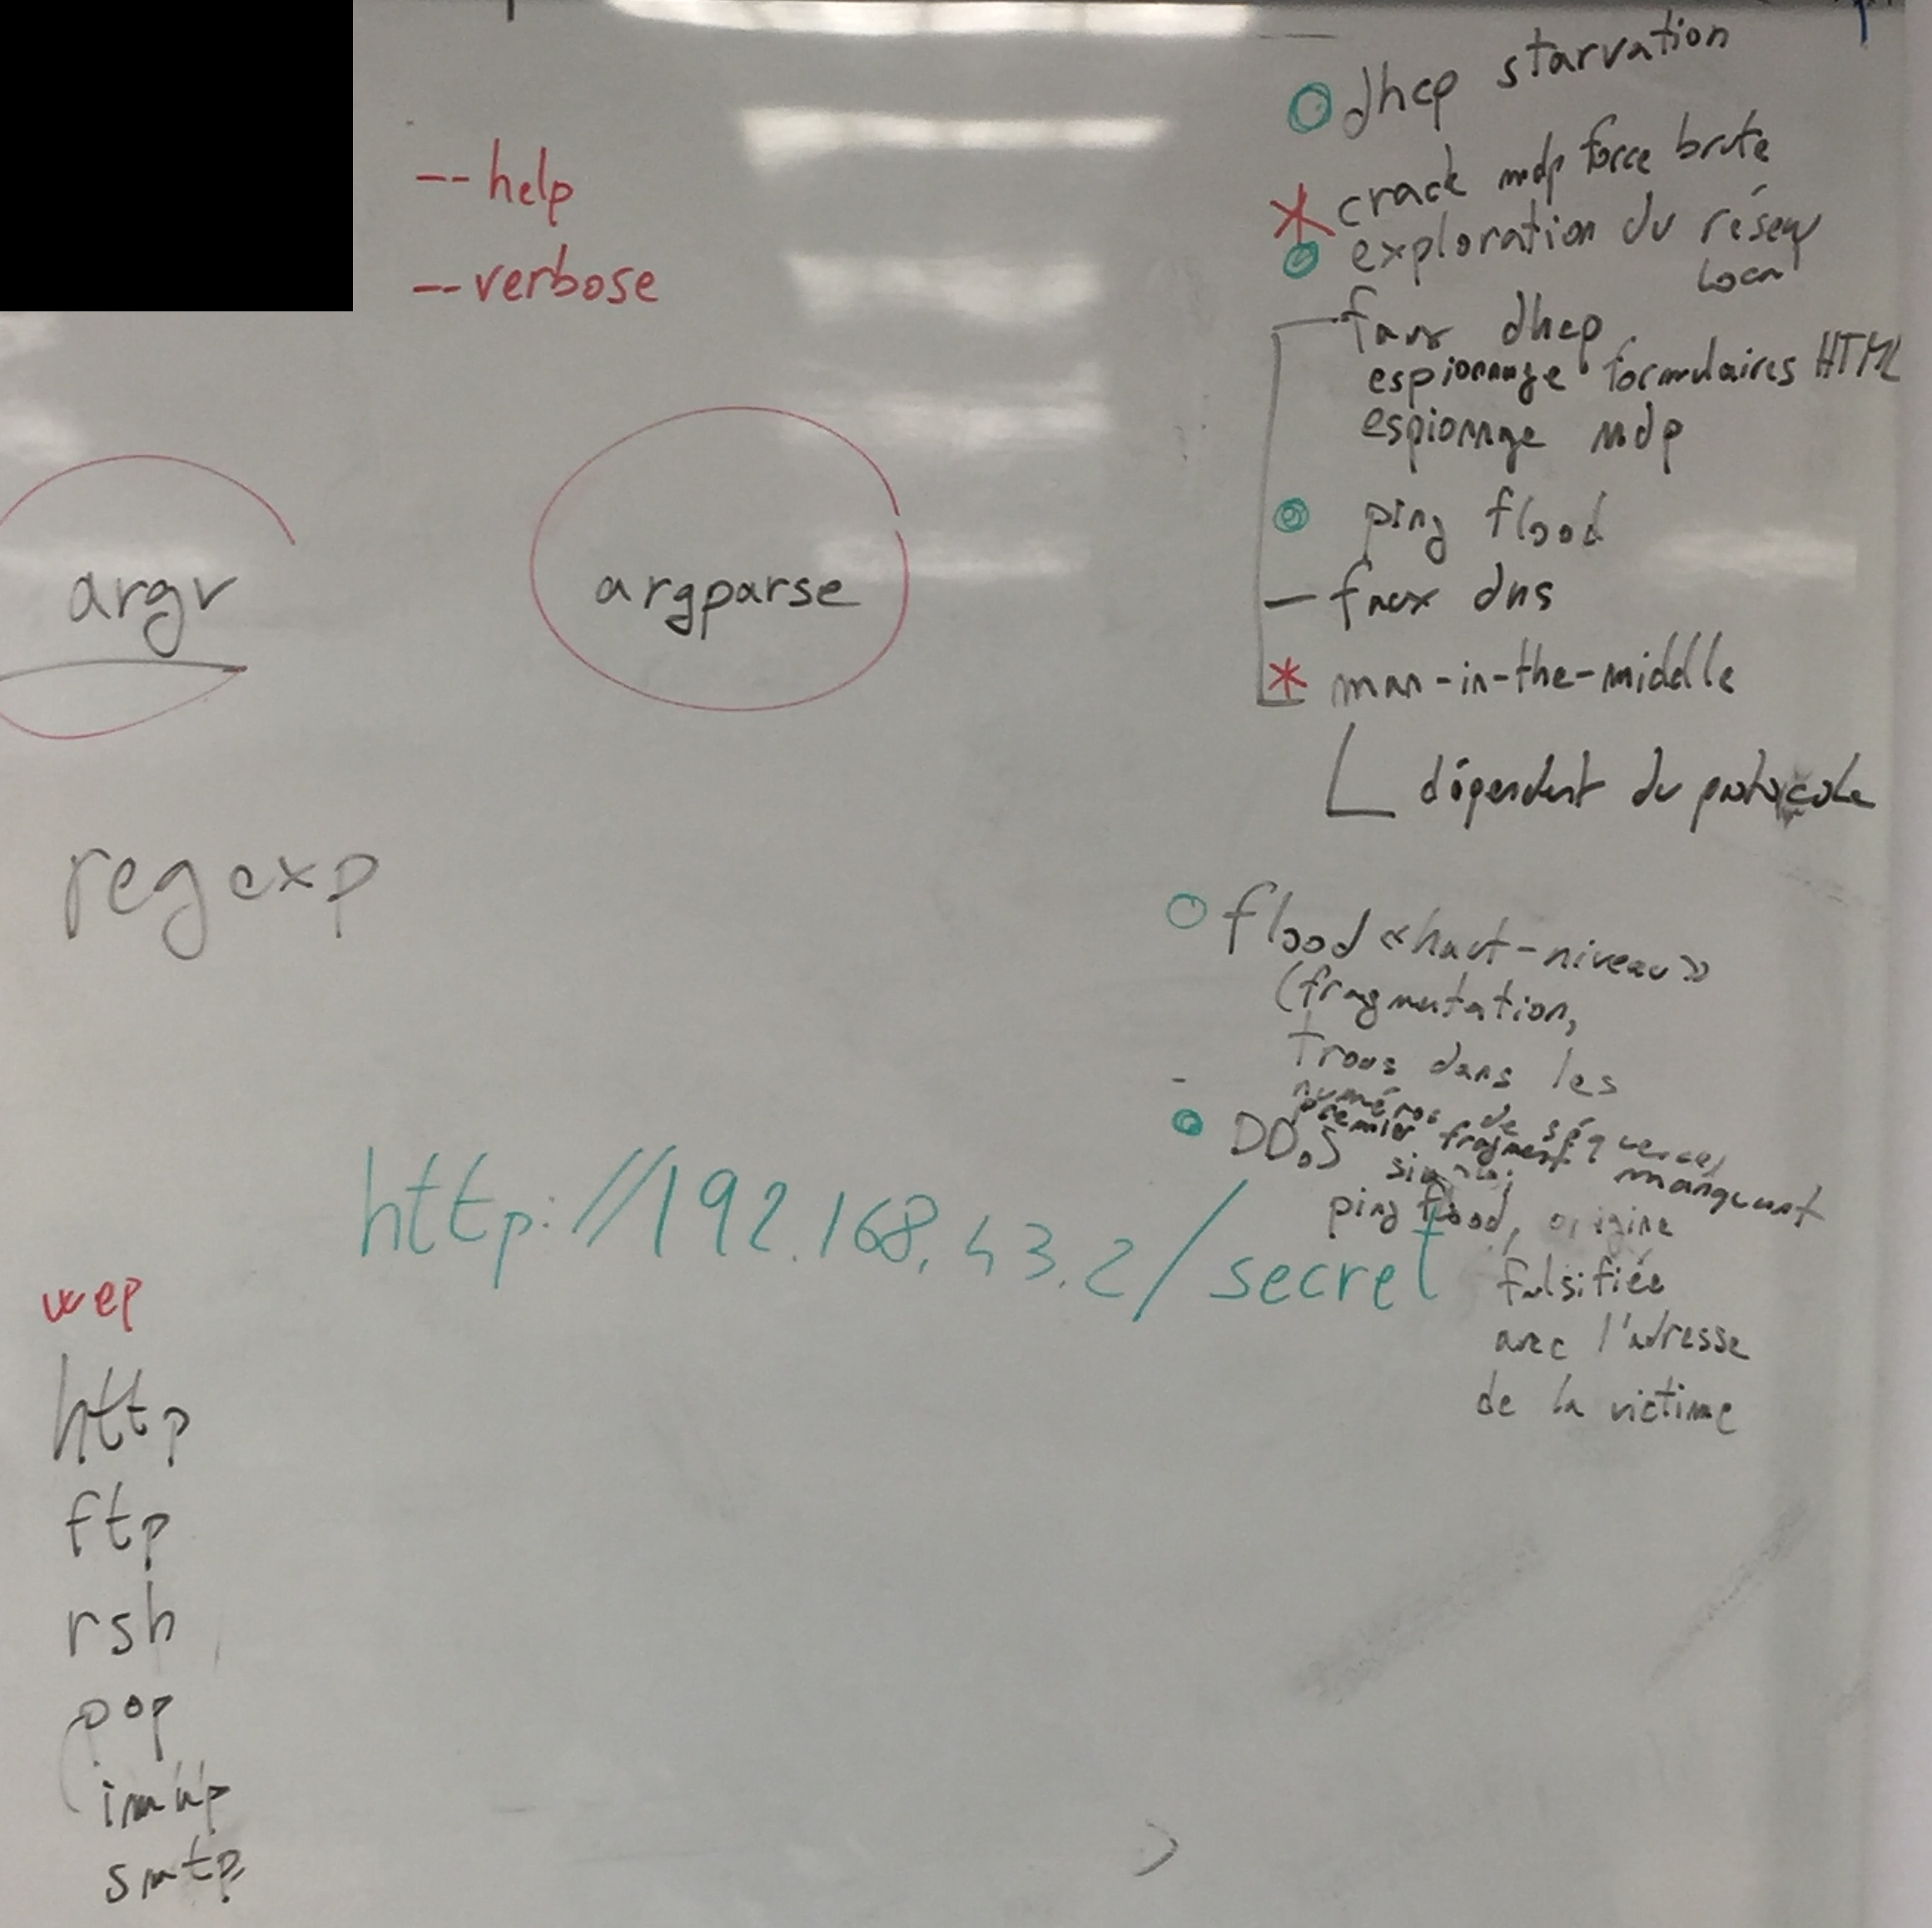 --help
--verbose
argv
argparse
regexp
http://192.168.43.2/secret
wep
http
ftp
rsh
pop
imap
smtp
dhcp starvation
crack mdp force brute
exploration du réseau
local
faux dhcp
espionnage formulaires HTML
espionnage mdp
ping flood
faux dns
man-in-the-middle
dépendent du protocole
flood «haut-niveau»
(fragmentation,
trous dans les
numéros de séquence,
premier fragment manquant
DDoS
ping flood, origine
falsifiée
avec l'adresse
de la victime